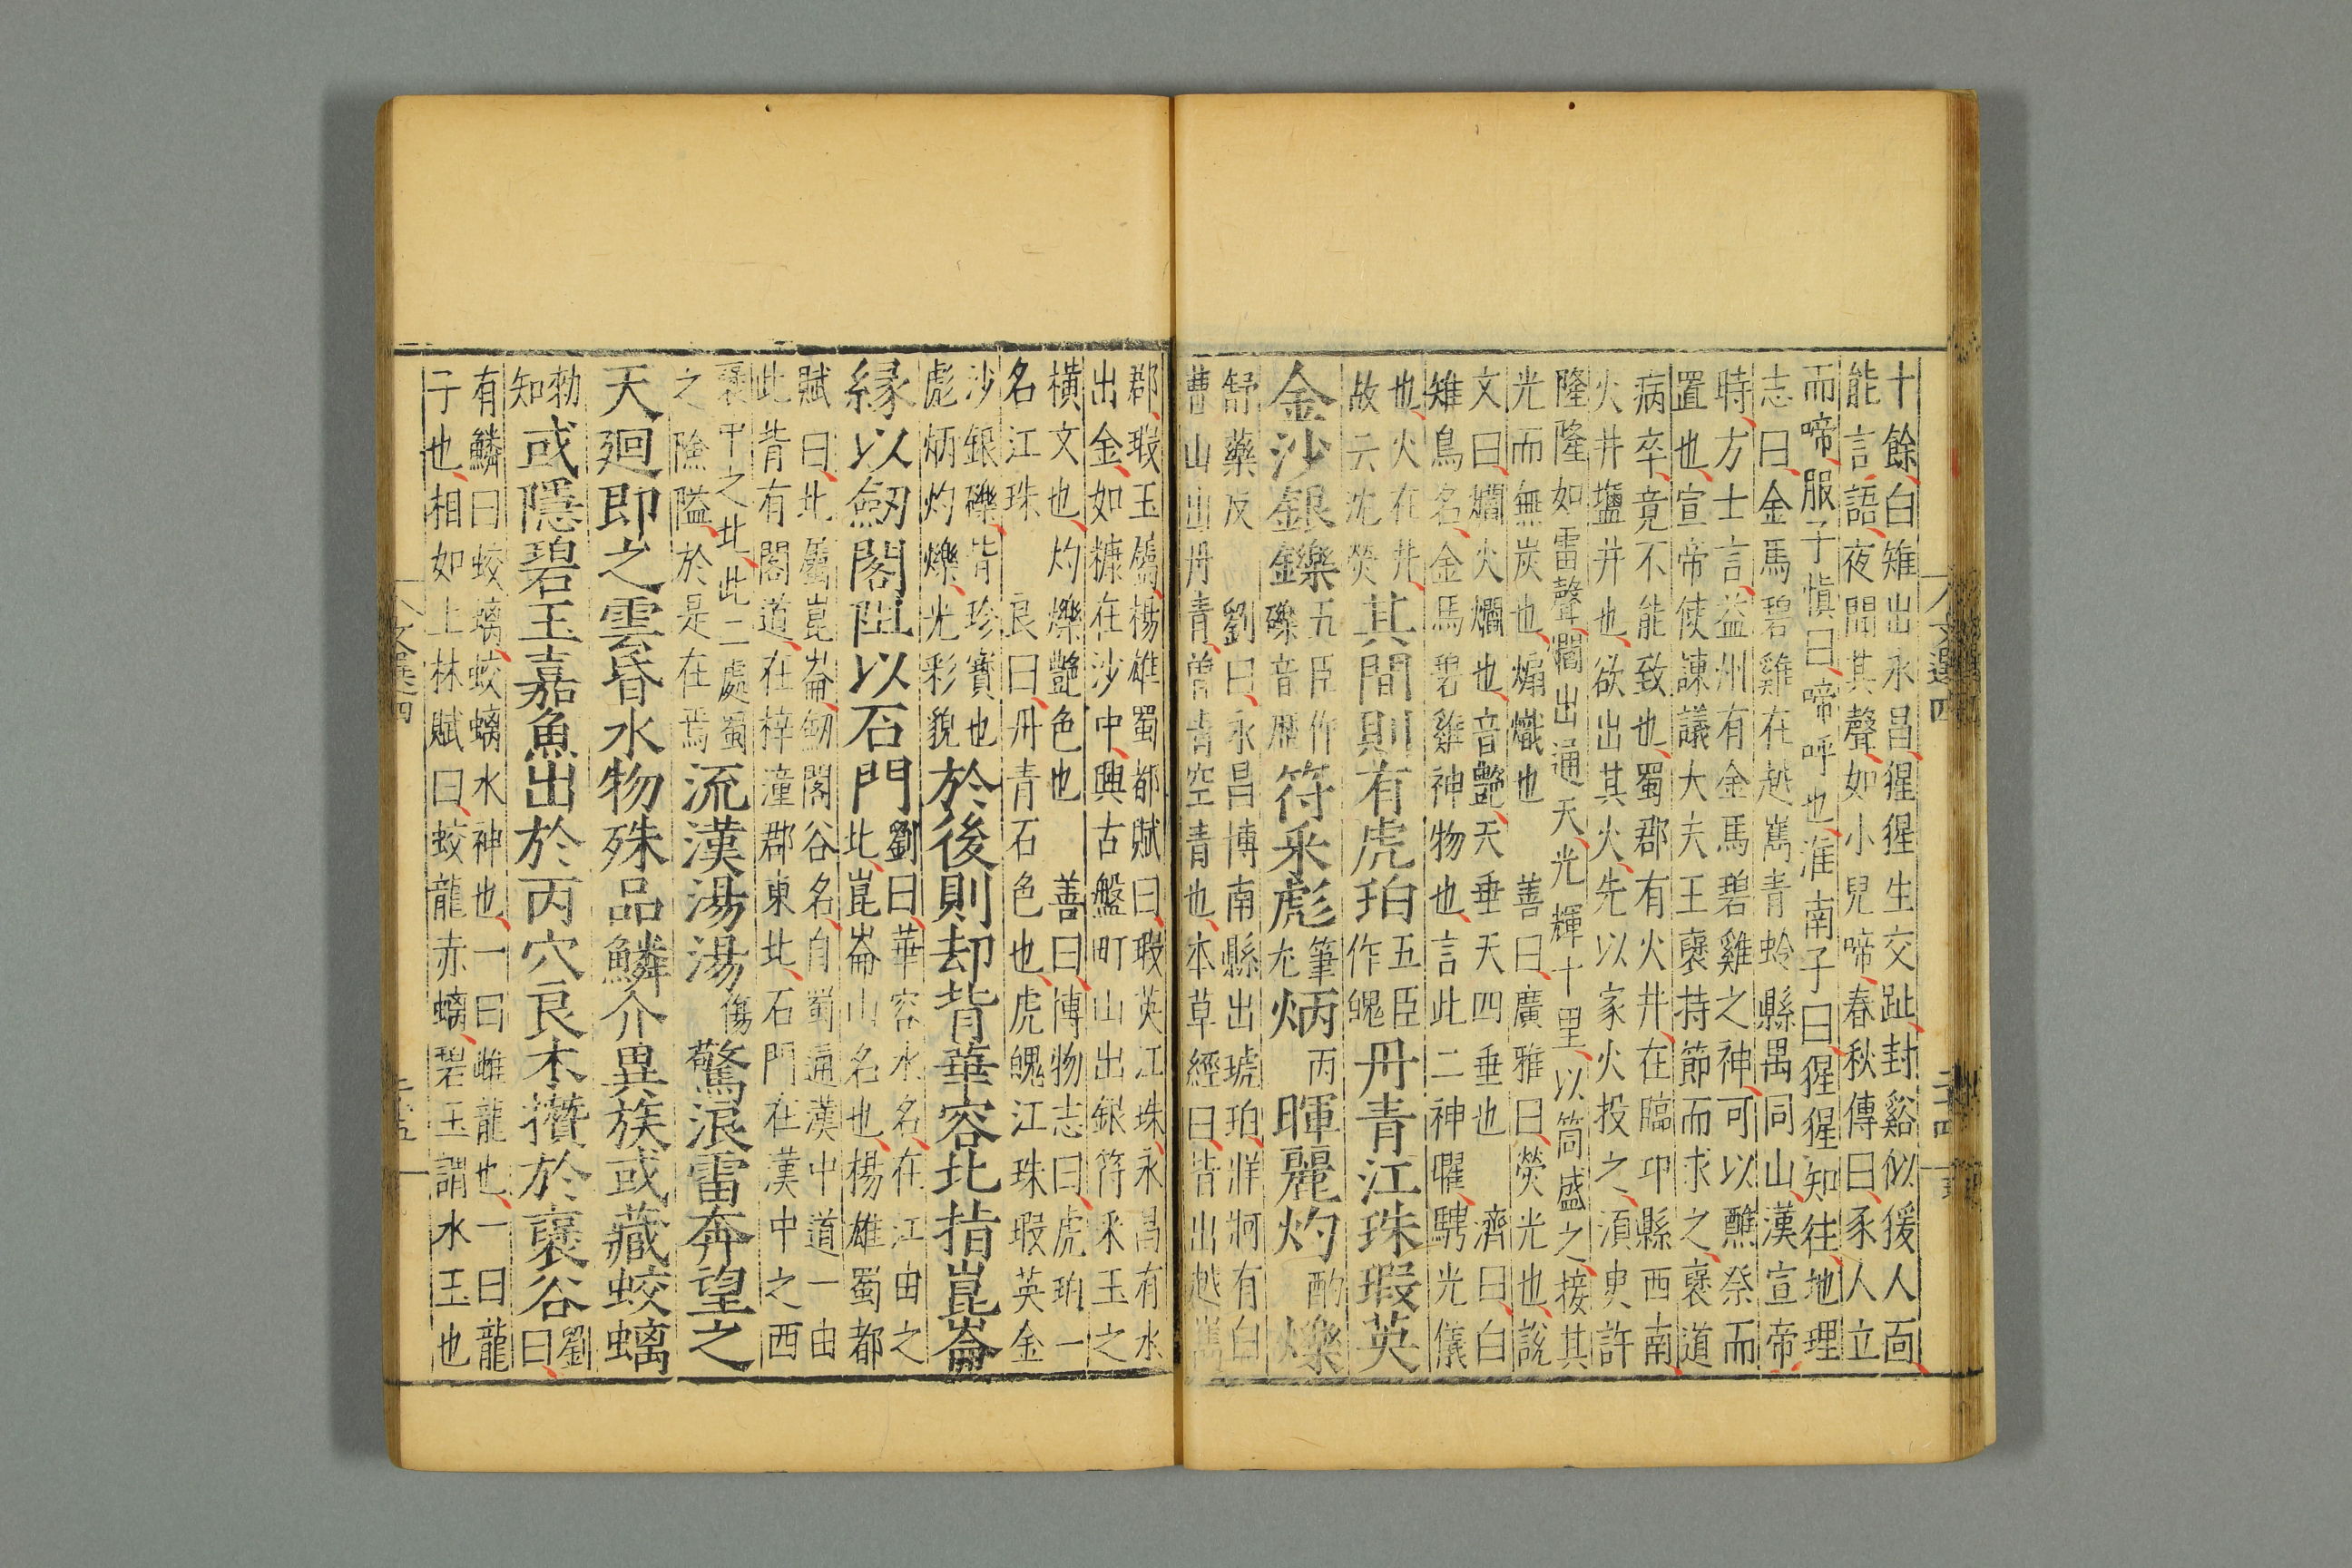 十餘、白雉出永昌、猩猩生交趾、封谿似猨人面、
能言語、夜聞其聲、如小兒啼、春秋傳曰、豕人立
而啼、服子愼曰、啼呼也、淮南子曰、猩猩知往、地理
志曰、金馬碧雞在越嶲青蛉縣禺同山、漢宣帝、
時、方士言、益州有金馬碧雞之神、可以醮祭而
置也、宣帝使諫議大夫王襃持節而求之、襃道
病卒、竟不能致也、蜀郡有火井、在臨邛縣西南、
火井鹽井也、欲出其火、先以家火投之、須臾許
隆隆如雷聲、爓出通天、光輝十里、以筒盛之、接其
光而無炭也、煽熾也 善曰、廣雅曰、熒光也、說
文曰、爓火爓也、音艷、天垂天四垂也 濟曰、白
雉鳥名、金馬碧雞神物也、言此二神曜、騁光儀
也、火在井、
故云沈熒
其間則有虎珀
五臣
作魄
丹青江珠瑕英
金沙銀鑠
五臣作
礫音歷
符采彪
筆
尤
炳
丙
暉麗灼
酌
爍
舒藥反 劉曰、永昌博南縣出琥珀、牂牁有白
曹山山丹青、曾青空青也、本草經曰、皆出越嶲
郡、瑕玉屬、楊雄蜀都賦曰、瑕英江珠、永昌有水
出金、如糠在沙中、興古盤町山出銀符采玉之
橫文也、灼爍艷色也 善曰、博物志曰、虎珀一
名江珠 良曰、丹青石色也、虎魄江珠瑕英金
沙銀礫、皆珍寶也
彪炳灼爍、光彩貌
於後則却背華容北指崑崙
緣以劒閣阻以石門
劉曰、華容水名、在江由之
北、崑崙山名也、楊雄蜀都
賦曰、北屬崑崙、劒閣谷名、自蜀通漢中道一由
此背有閣道、在梓潼郡東北、石門在漢中之西
襃中之北、此二處蜀
之險隘、於是在焉
流漢湯湯
傷
驚浪雷奔望之
天廻即之雲昏水物殊品鱗介異族或藏蛟螭
勑
知
或隱碧玉嘉魚出於丙穴良木攢於襃谷
劉
曰、
有鱗曰蛟螭、蛟螭水神也、一曰雌龍也、一曰龍
子也、相如上林賦曰、蛟龍赤螭、碧玉謂水玉也